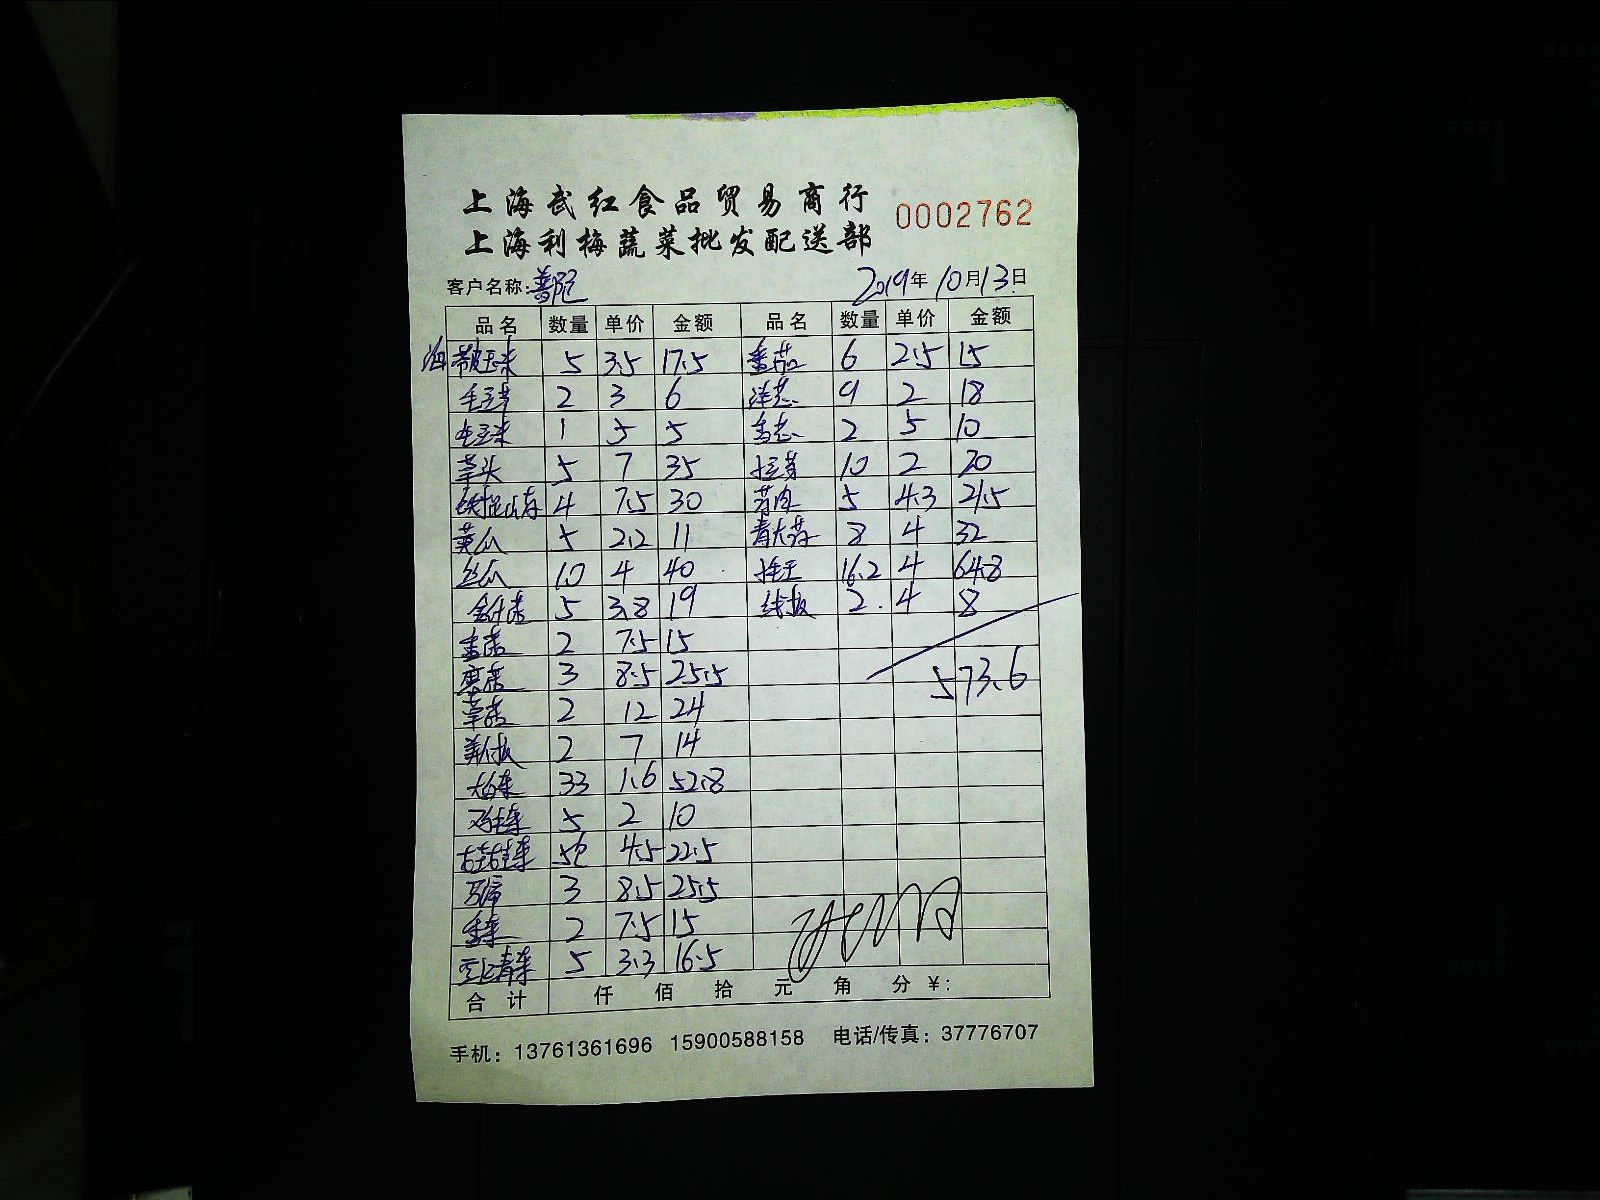 上海武红食品贸易商行
0002762
上海利梅蔬菜批发配送部
客户名称：普陀 2019年10月13日
品名 数量 单价 金额 品名 数量 单价 金额
带皮玉米 5 3.5 17.5 番茄 6 2.5 15
毛豆 2 3 6 洋葱 9 2 18
1 5 5 2 5 10
芋头 5 7 35 10 2 20
铁棍山药 4 7.5 30 5 4.3 21.5
黄瓜 5 2.2 11 8 4 32
丝瓜 10 4 40 16.2 4 64.8
金针菇 5 3.8 19 线椒 2 4 8
2 7.5 15
3 8.5 25.5 573.6
草菇 2 12 24
美人椒 2 7 14
大白菜 33 1.6 52.8
鸡毛菜 5 2 10
5 4.5 22.5
马蹄 3 8.5 25.5
香菜 2 7.5 15
上海青菜 5 3.3 16.5
合计 仟 佰 拾 元 角 分 ¥：
手机：13761361696 15900588158 电话/传真：37776707